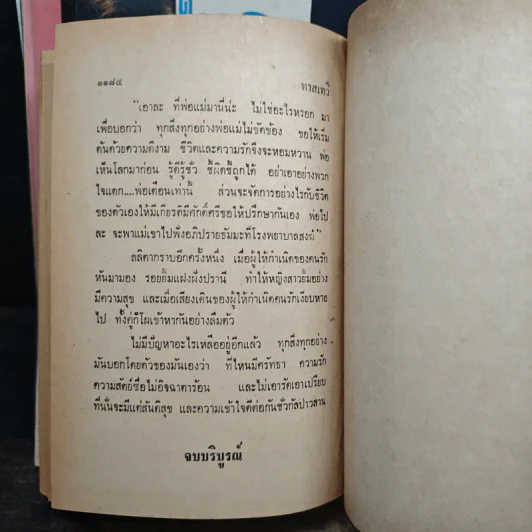 ๑๑๘๔ ทาสเทวี
"เอาละ ที่พ่อแม่มานี่น่ะ ไม่ใช่อะไรหรอก มา
เพื่อบอกว่า ทุกสิ่งทุกอย่างพ่อแม่ไม่ขัดข้อง ขอให้เริ่ม
ต้นด้วยความดีงาม ชีวิตและความรักจึงจะหอมหวาน พ่อ
เห็นโลกมาก่อน รู้ดีรู้ชั่ว ชี้ผิดชี้ถูกได้ อย่าเอาอย่างพวก
ใจแตก....พ่อเตือนเท่านี้ ส่วนจะจัดการอย่างไรกับชีวิต
ของตัวเองให้มีเกียรติมีศักดิ์ศรีขอให้ปรึกษากันเอง พ่อไป
ละ จะพาแม่เขาไปฟังอภิปรายธัมมะที่โรงพยาบาลสงฆ์"
ลลิตากราบอีกครั้งหนึ่ง เมื่อผู้ให้กำเนิดของคนรัก
หันมามอง รอยยิ้มแฝงฝั่งปรานี ทำให้หญิงสาวยิ้มอย่าง
มีความสุข และเมื่อเสียงเดินของผู้ให้กำเนิดคนรักเงียบหาย
ไป ทั้งคู่ก็โผเข้าหากันอย่างลืมตัว
ไม่มีปัญหาอะไรเหลืออยู่อีกแล้ว ทุกสิ่งทุกอย่าง
มันบอกโดยตัวของมันเองว่า ที่ไหนมีศรัทธา ความรัก
ความสัตย์ซื่อไม่อิจฉาตาร้อน และไม่เอารัดเอาเปรียบ
ที่นั่นจะมีแต่สันติสุข และความเข้าใจดีต่อกันชั่วกัลปาวสาน
จบบริบูรณ์